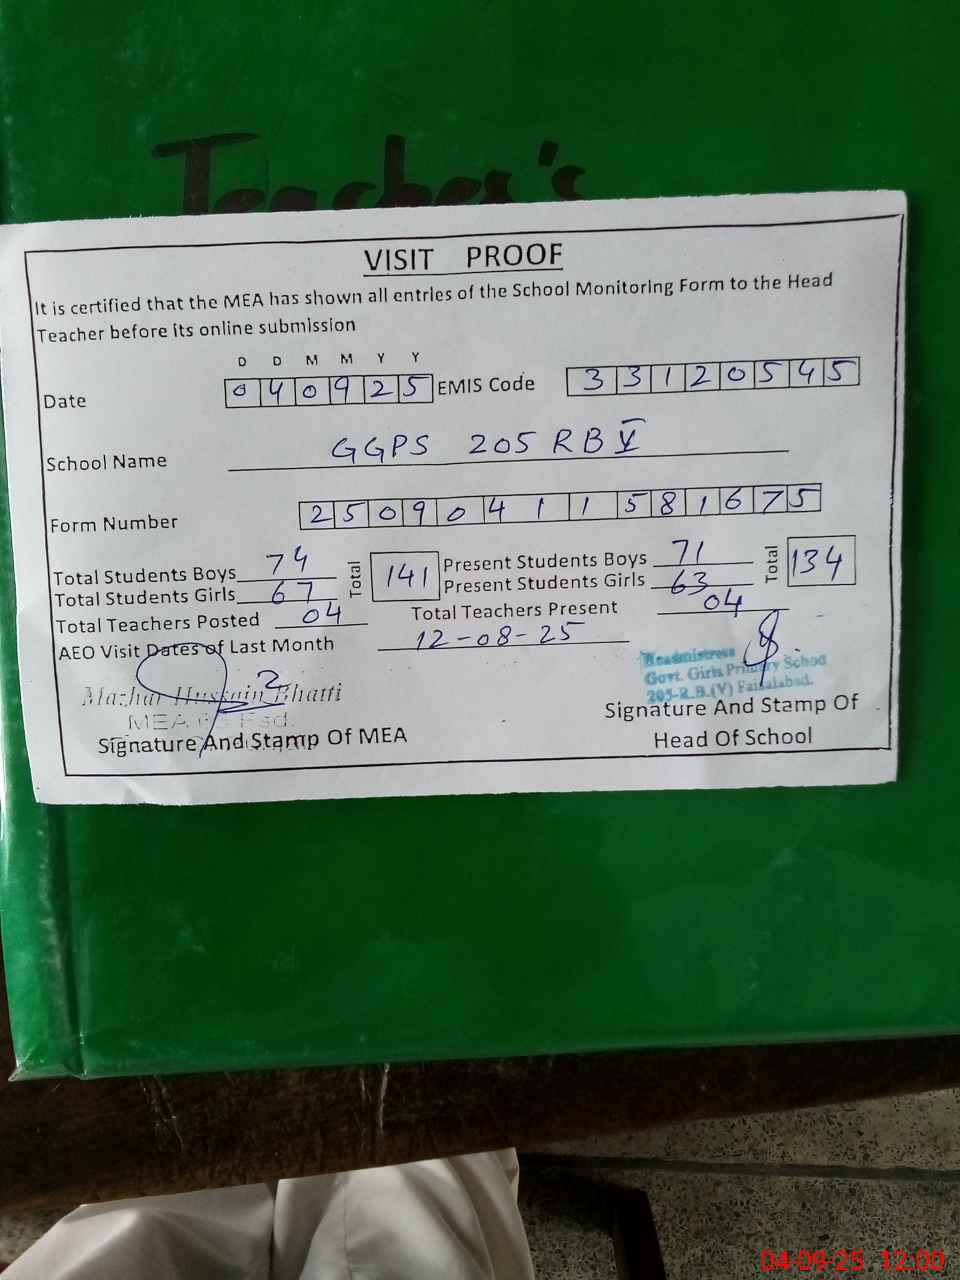 Teacher's
VISIT PROOF
It is certified that the MEA has shown all entries of the School Monitoring Form to the Head
Teacher before its online submission
D D M M Y Y
Date 040925 EMIS Code 33120545
School Name GGPS 205 RB V
Form Number 25090411581675
Total Students Boys 74 Total 141 Present Students Boys 71 Total 134
Total Students Girls 67 Present Students Girls 63
Total Teachers Posted 04 Total Teachers Present 04
AEO Visit Dates of Last Month 12-08-25
Mazhar Hussain Bhatti
MEA
Signature And Stamp Of MEA
Headmistress
Govt. Girls Primary School
205-R.B.(V) Faisalabad.
Signature And Stamp Of
Head Of School
04-09-25 12:00